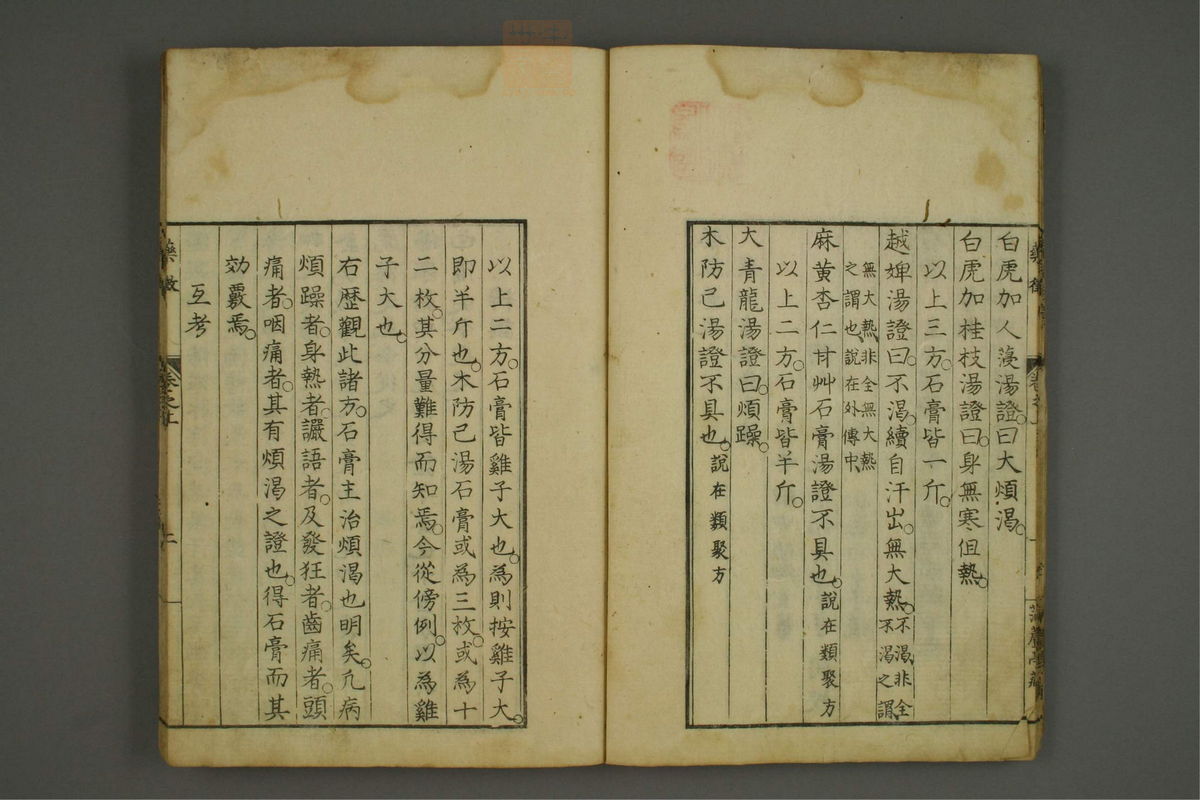 白虎加人蓡湯證曰大煩渴。
白虎加桂枝湯證曰。身無寒但熱。
以上三方。石膏皆一斤。
越婢湯證曰。不渴。續自汗出。無大熱。不渴、非全不渴之謂、
無大熱、非全無大熱之謂也、說在外傳中、
麻黄杏仁甘艸石膏湯證不具也。說在類聚方
以上二方。石膏皆半斤。
大青龍湯證曰。煩躁。
木防己湯證不具也。說在類聚方
以上二方。石膏皆雞子大也。為則按雞子大。
即半斤也。木防己湯石膏或為三枚。或為十
二枚。其分量難得而知焉。今從傍例。以為雞
子大也。
右歷觀此諸方。石膏主治煩渴也明矣。凢病
煩躁者。身熱者。讝語者。及發狂者。齒痛者。頭
痛者。咽痛者。其有煩渴之證也。得石膏而其
効覈焉。
互考
藥徵
卷之上